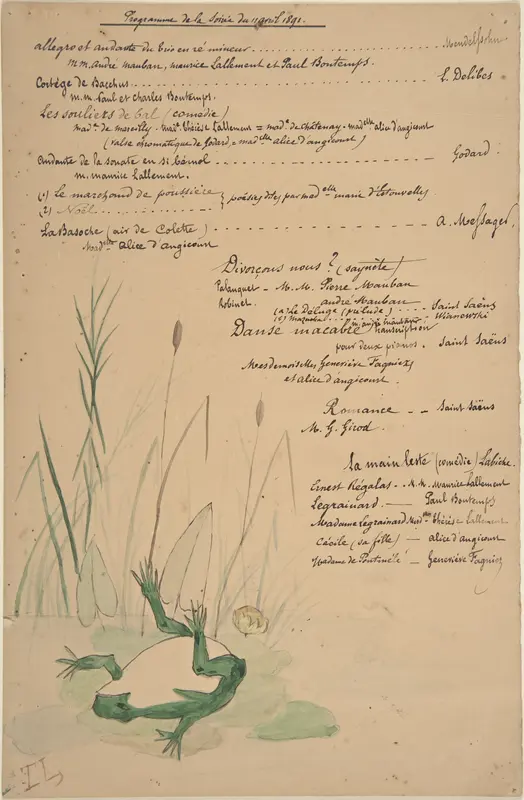 Programme de la Soirée du 11 avril 1891.
allegro et andante du trio en ré mineur ........ Mendelssohn
m.m. André Mauban, maurice Lallement et Paul Bontemps.
Cortège de Bacchus ........ L. Delibes
m.m. Paul et Charles Bontemps.
Les souliers de bal (comédie)
mad.e de marsilly - mad.elle Thérèse Lallement = mad.e de Châtenay - mad.elle alice d'angicourt
(valse chromatique de Godard = mad.elle alice d'angicourt)
andante de la sonate en si bémol ........ Godard
m. maurice Lallement.
(1) Le marchand de poussière } poésies dites par mad.elle marie d'Estouvelles
(2) Noël ........
La Basoche (air de Colette) ........ A. Messager
Mad.elle alice d'angicourt
Divorçons nous ? (saynète)
Palanquet - M.M. Pierre Mauban
Robinet - andré Mauban
(a) Le Déluge (prélude) .... Saint Saëns
(b) Mazurka .... Wianewski
m. andré mauban
Danse macabre transcription
pour deux pianos. Saint Saëns
Mesdemoiselles Geneviève Fagniez
et alice d'angicourt.
Romance - - Saint Saëns
M. G. Girod.
La main leste (comédie) Labiche.
Ernest Régalas - - M.M. Maurice Lallement
Legrainard — Paul Bontemps
Madame Legrainard Mad.elle Thérèse Lallement
Cécile (sa fille) — alice d'angicourt
Madame de Pontmêlé — Geneviève Fagniez